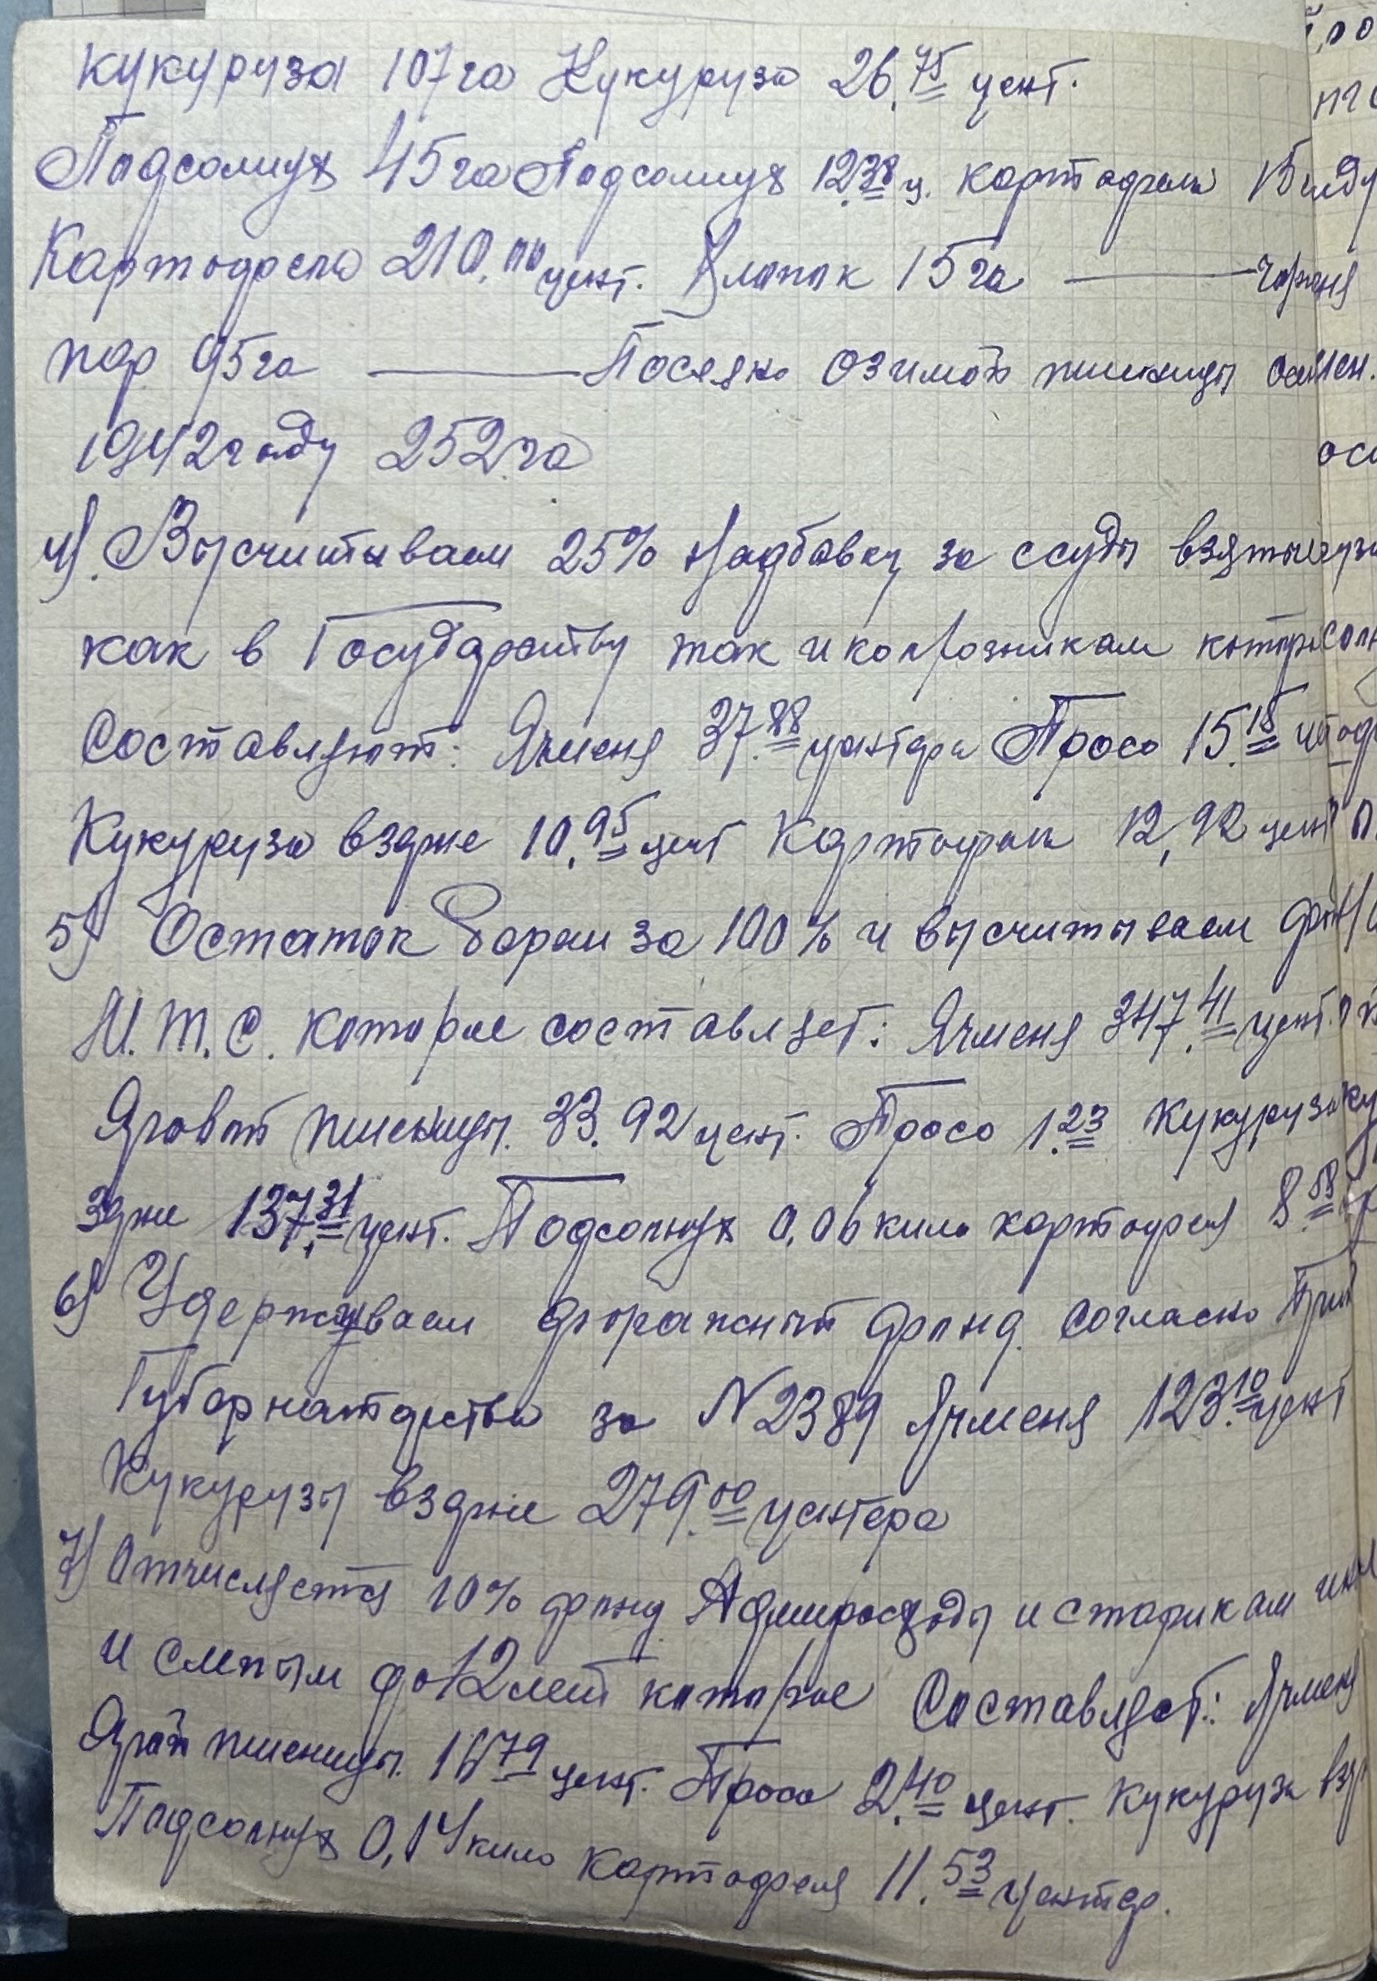 кукуруза 107 га Кукуруза 26.75 цент.
Подсолнух 45 га Подсолнух 12.38 ц. картофеля 15
Картофеля 210.00 цент. Хлопок 15 га —
пар 95 га — Посеяно озимой пшеницы осен.
1942 году 252 га
4) Высчитываем 25% Надбавку за ссуды взятые
как в Государству так и колхозникам
Составляют: Ячменя 37.88 центера Просо 15.15
Кукуруза вздже 10.95 цент Картофеля 12,92 цент
5) Остаток берем за 100% и высчитываем
М.Т.С. которые составляет: Ячменя 347.41 цент.
Яровой пшеницы 33.92 цент. Просо 1.23 Кукуруза
здже 137.31 цент. Подсолнух 0,06 кило картофеля 8.58
6) Удержываем фуражный фонд. Согласно
Губернаторства за N 2389 Ячменя 123.10 цент
Кукурузы вздже 279.00 центера
7) Отчисляется 10% фонд Админрасходы и старикам
и слепым до 12 лет которые Составляет: Ячменя
Ярой пшеницы 16.79 цент. Просо 2.40 цент. Кукуруза
Подсолнух 0,14 кило картофеля 11.53 центер.